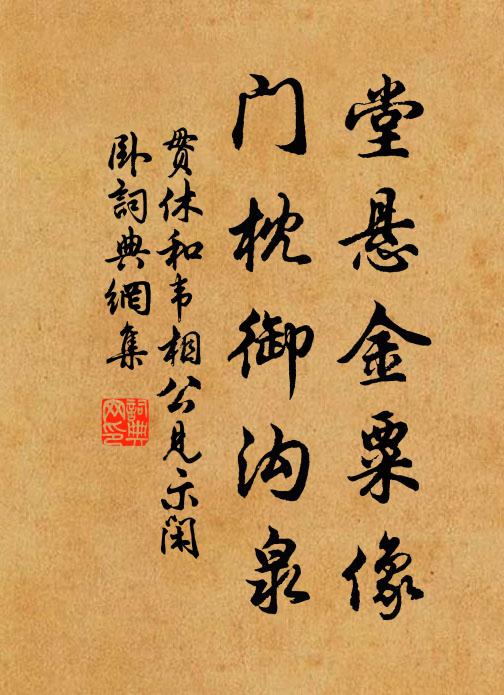 堂悬金粟像
门枕御沟泉
贯休和韦相公见示闲
卧词典網集
詞典網印